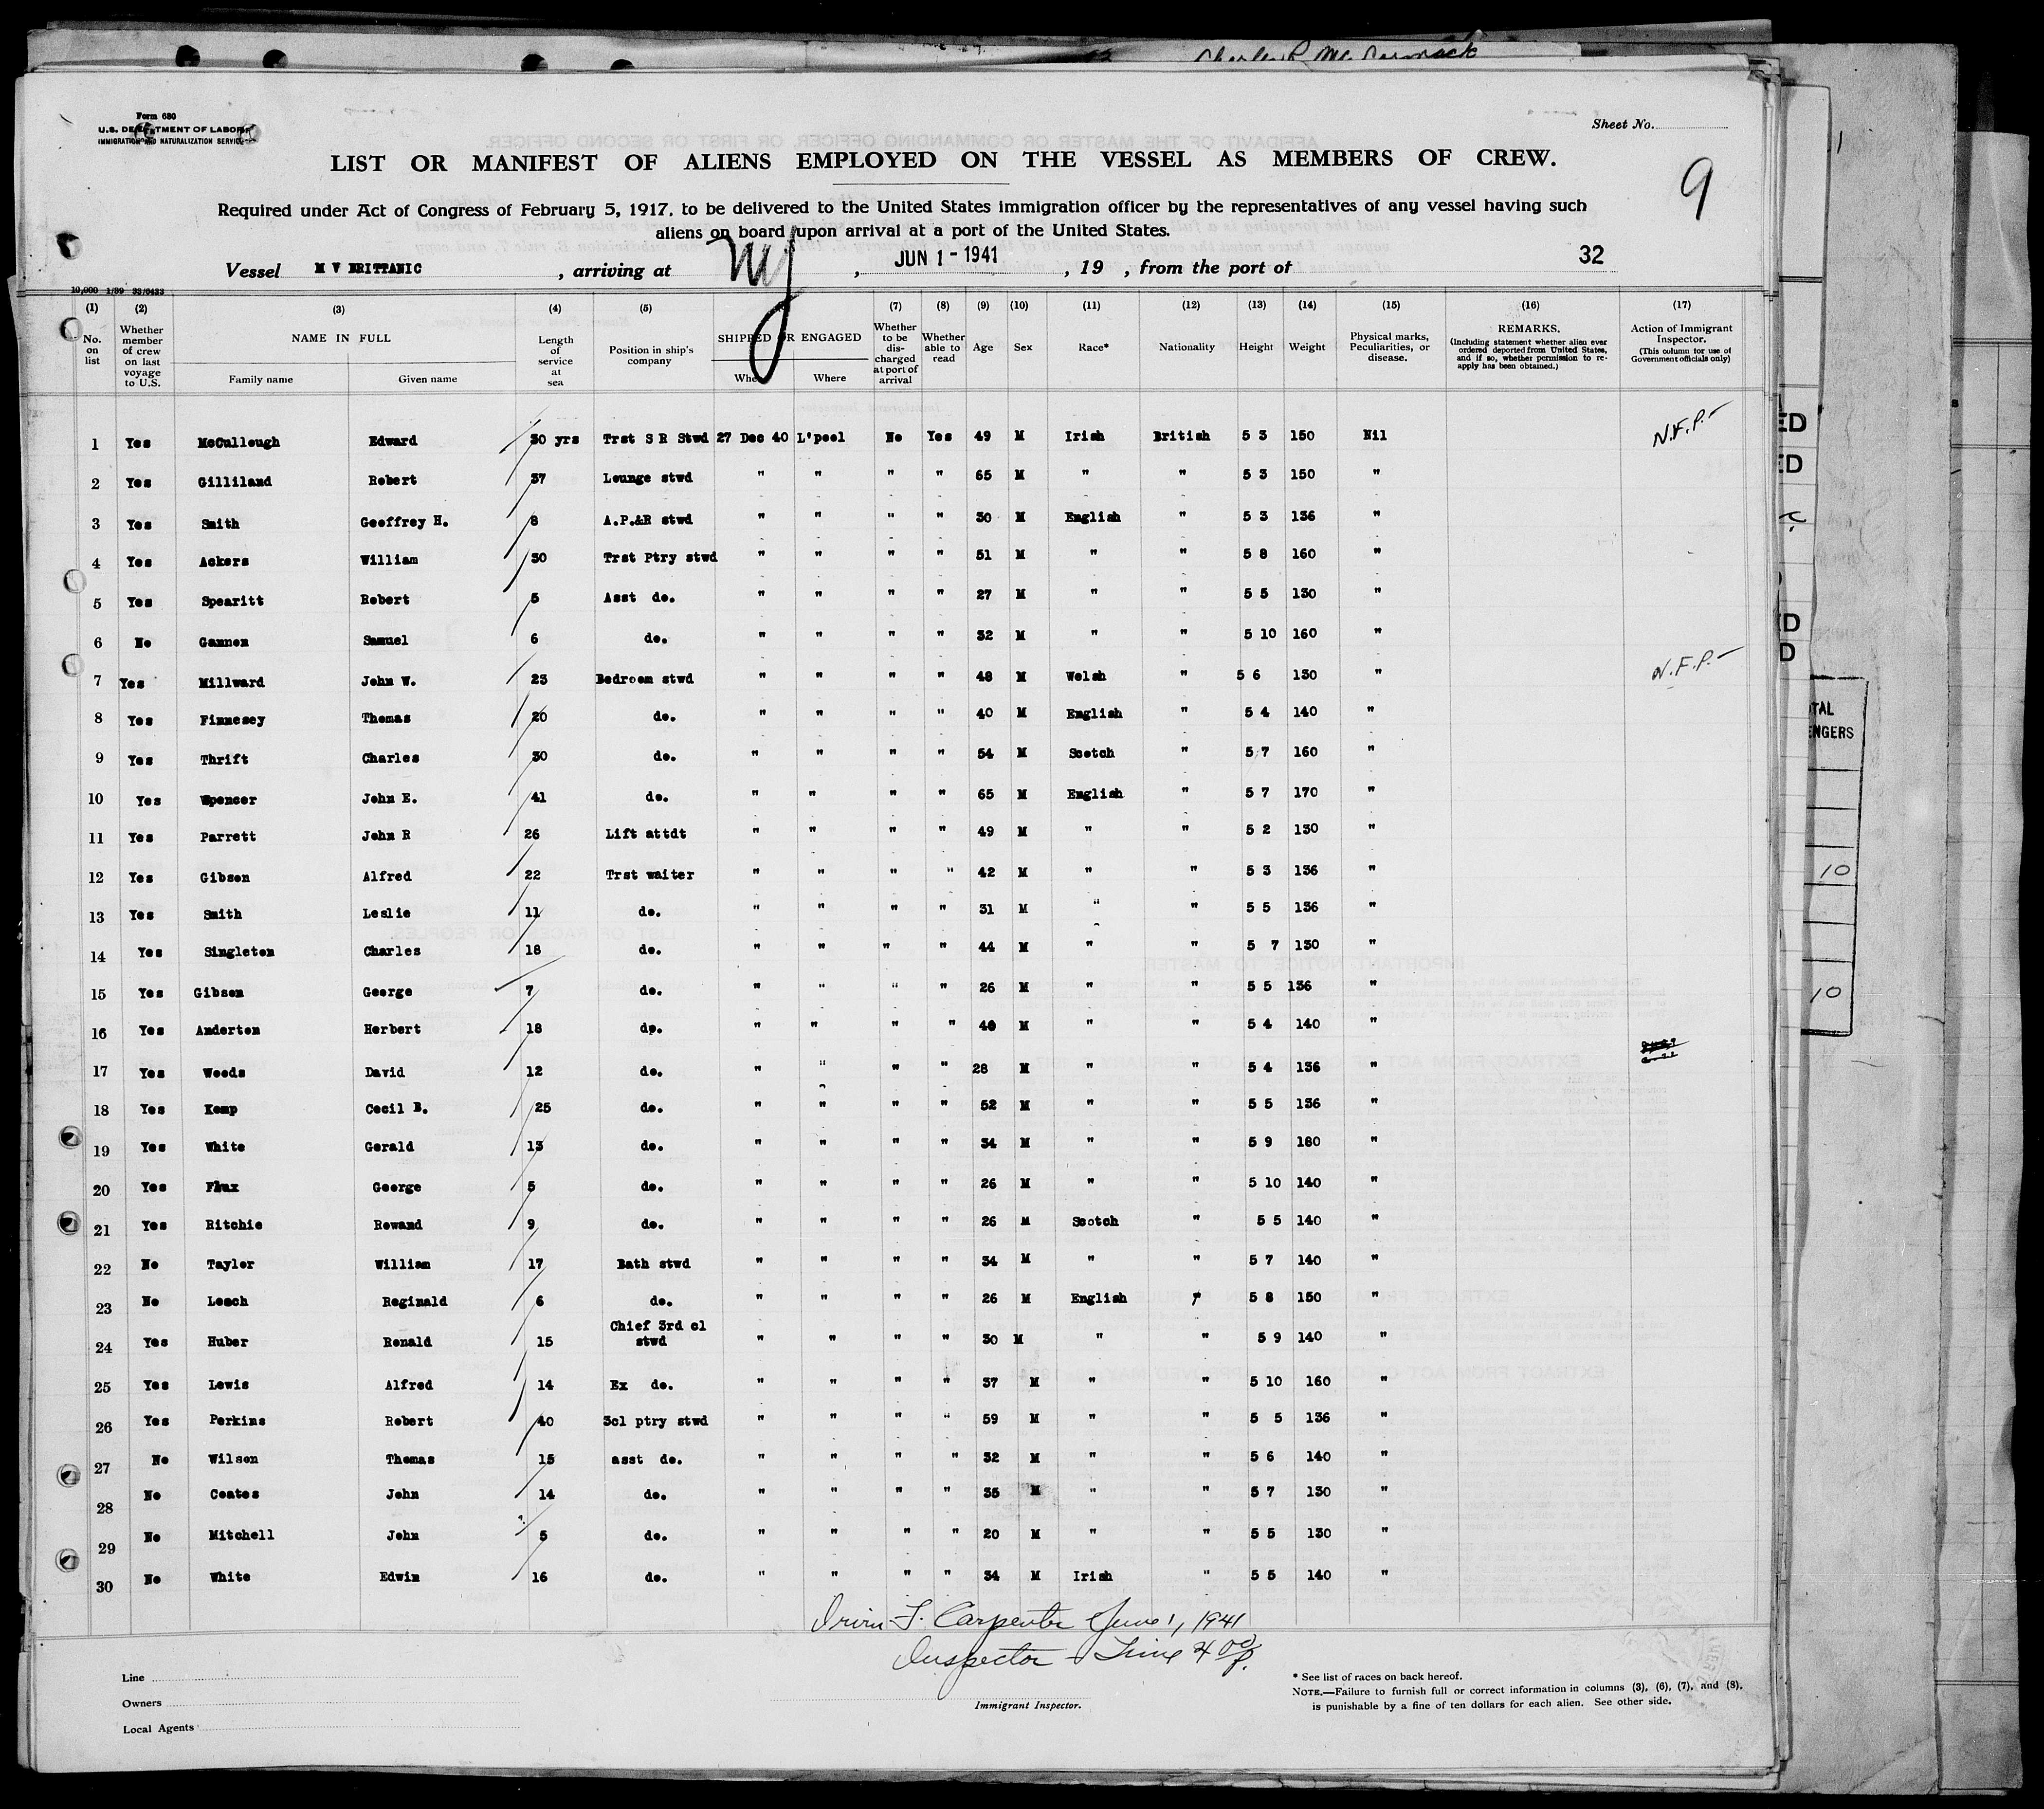 Charles R McCormack
Form 680
U.S. DEPARTMENT OF LABOR
IMMIGRATION AND NATURALIZATION SERVICE
Sheet No.
LIST OR MANIFEST OF ALIENS EMPLOYED ON THE VESSEL AS MEMBERS OF CREW.
9
Required under Act of Congress of February 5, 1917, to be delivered to the United States immigration officer by the representatives of any vessel having such
aliens on board upon arrival at a port of the United States.
Vessel M V BRITTANIC , arriving at NY , JUN 1 - 1941 , 19 , from the port of 32
10,000 1/39 33/6433
(1) (2) (3) (4) (5) (7) (8) (9) (10) (11) (12) (13) (14) (15) (16) (17)
No. on list Whether member of crew on last voyage to U.S. NAME IN FULL Family name Given name Length of service at sea Position in ship's company SHIPPED OR ENGAGED When Where Whether to be discharged at port of arrival Whether able to read Age Sex Race* Nationality Height Weight Physical marks, Peculiarities, or disease. REMARKS. (Including statement whether alien ever ordered deported from United States, and if so, whether permission to reapply has been obtained.) Action of Immigrant Inspector. (This column for use of Government officials only)
1 Yes McCullough Edward 30 yrs Trst S R Stwd 27 Dec 40 L'pool No Yes 49 M Irish British 5 3 150 Nil N.F.P.-
2 Yes Gilliland Robert 37 Lounge stwd " " " " 65 M " " 5 3 150 "
3 Yes Smith Geoffrey H. 8 A.P.&R stwd " " " " 30 M English " 5 3 136 "
4 Yes Ackers William 30 Trst Ptry stwd " " " " 51 M " " 5 8 160 "
5 Yes Spearitt Robert 5 Asst do. " " " " 27 M " " 5 5 130 "
6 No Gannon Samuel 6 do. " " " " 32 M " " 5 10 160 "
7 Yes Millward John W. 23 Bedroom stwd " " " " 48 M Welsh " 5 6 130 " N.F.P.-
8 Yes Finnesey Thomas 20 do. " " " " 40 M English " 5 4 140 "
9 Yes Thrift Charles 30 do. " " " " 54 M Scotch " 5 7 160 "
10 Yes Spencer John E. 41 do. " " " " 65 M English " 5 7 170 "
11 Yes Parrett John R 26 Lift attdt " " " " 49 M " " 5 2 130 "
12 Yes Gibson Alfred 22 Trst waiter " " " " 42 M " " 5 3 136 "
13 Yes Smith Leslie 11 do. " " " " 31 M " " 5 5 136 "
14 Yes Singleton Charles 18 do. " " " " 44 M " " 5 7 130 "
15 Yes Gibson George 7 do. " " " " 26 M " " 5 5 136 "
16 Yes Anderton Herbert 18 do. " " " " 40 M " " 5 4 140 "
17 Yes Woods David 12 do. " " " " 28 M " " 5 4 136 "
18 Yes Kemp Cecil B. 25 do. " " " " 52 M " " 5 5 136 "
19 Yes White Gerald 13 do. " " " " 34 M " " 5 9 180 "
20 Yes Flux George 5 do. " " " " 26 M " " 5 10 140 "
21 Yes Ritchie Rowand 9 do. " " " " 26 M Scotch " 5 5 140 "
22 No Taylor William 17 Bath stwd " " " " 34 M " " 5 7 140 "
23 No Leach Reginald 6 do. " " " " 26 M English " 5 8 150 "
24 Yes Huber Ronald 15 Chief 3rd cl stwd " " " " 30 M " " 5 9 140 "
25 Yes Lewis Alfred 14 Ex do. " " " " 37 M " " 5 10 160 "
26 Yes Perkins Robert 40 3cl ptry stwd " " " " 59 M " " 5 5 136 "
27 No Wilson Thomas 15 asst do. " " " " 32 M " " 5 6 140 "
28 No Coates John 14 do. " " " " 35 M " " 5 7 130 "
29 No Mitchell John 5 do. " " " " 20 M " " 5 5 130 "
30 No White Edwin 16 do. " " " " 34 M Irish " 5 5 140 "
Irvin F. Carpenter June 1, 1941
Inspector - Time 4 00 P.
Line
Owners
Local Agents
Immigrant Inspector.
* See list of races on back hereof.
NOTE.—Failure to furnish full or correct information in columns (3), (6), (7), and (8),
is punishable by a fine of ten dollars for each alien. See other side.
ED
ED
D
D
TAL
ENGERS
10
10